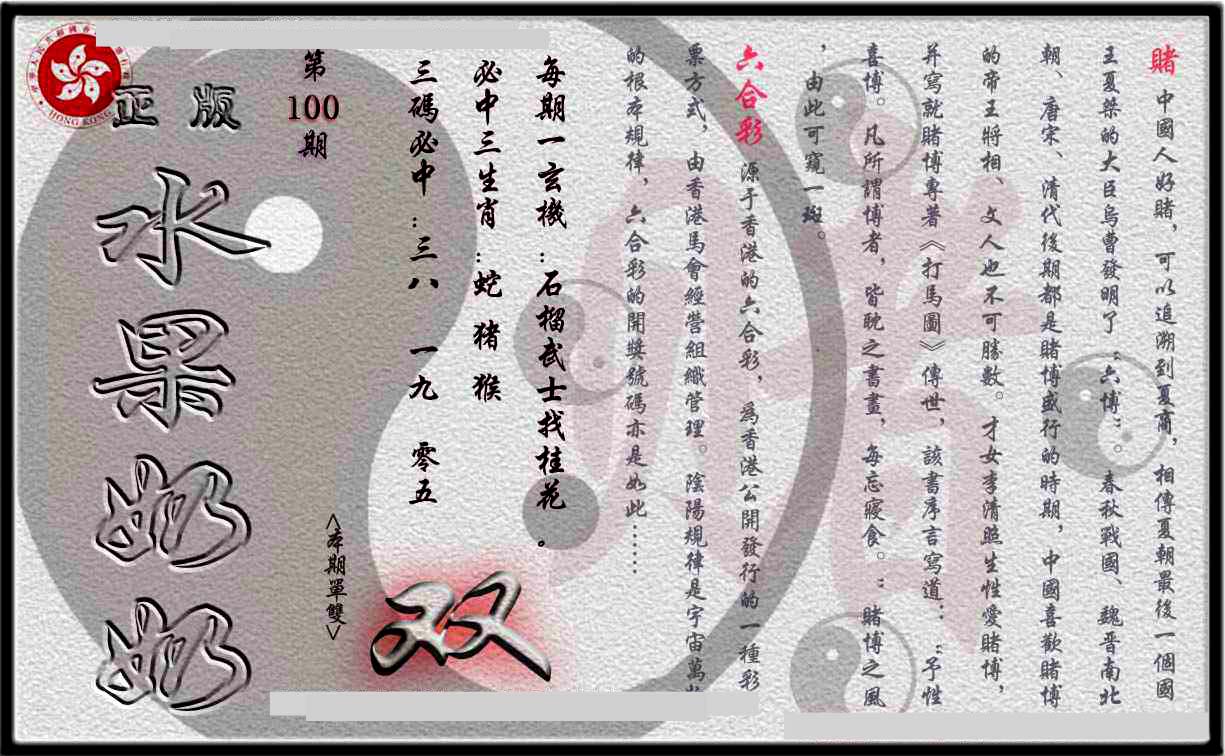 賭 中國人好賭，可以追溯到夏商，相傳夏朝最後一個國
王夏桀的大臣烏曹發明了“六博”。春秋戰國、魏晋南北
朝、唐宋、清代後期都是賭博盛行的時期，中國喜歡賭博
的帝王將相、文人也不可勝數。才女李清照生性愛賭博，
并寫就賭博專著《打馬圖》傳世，該書序言寫道：“予性
喜博。凡所謂博者，皆耽之書畫，每忘寢食。”賭博之風
，由此可窺一斑。
六合彩 源于香港的六合彩，為香港公開發行的一種彩
票方式，由香港馬會經營組織管理。陰陽規律是宇宙萬
的根本規律，六合彩的開獎號碼亦是如此……
每期一玄機：石榴武士找桂花。
必中三生肖：蛇 猪 猴
三碼必中：三八 一九 零五
<本期單雙>
双
第
100
期
正版
水果奶奶
HONG KONG